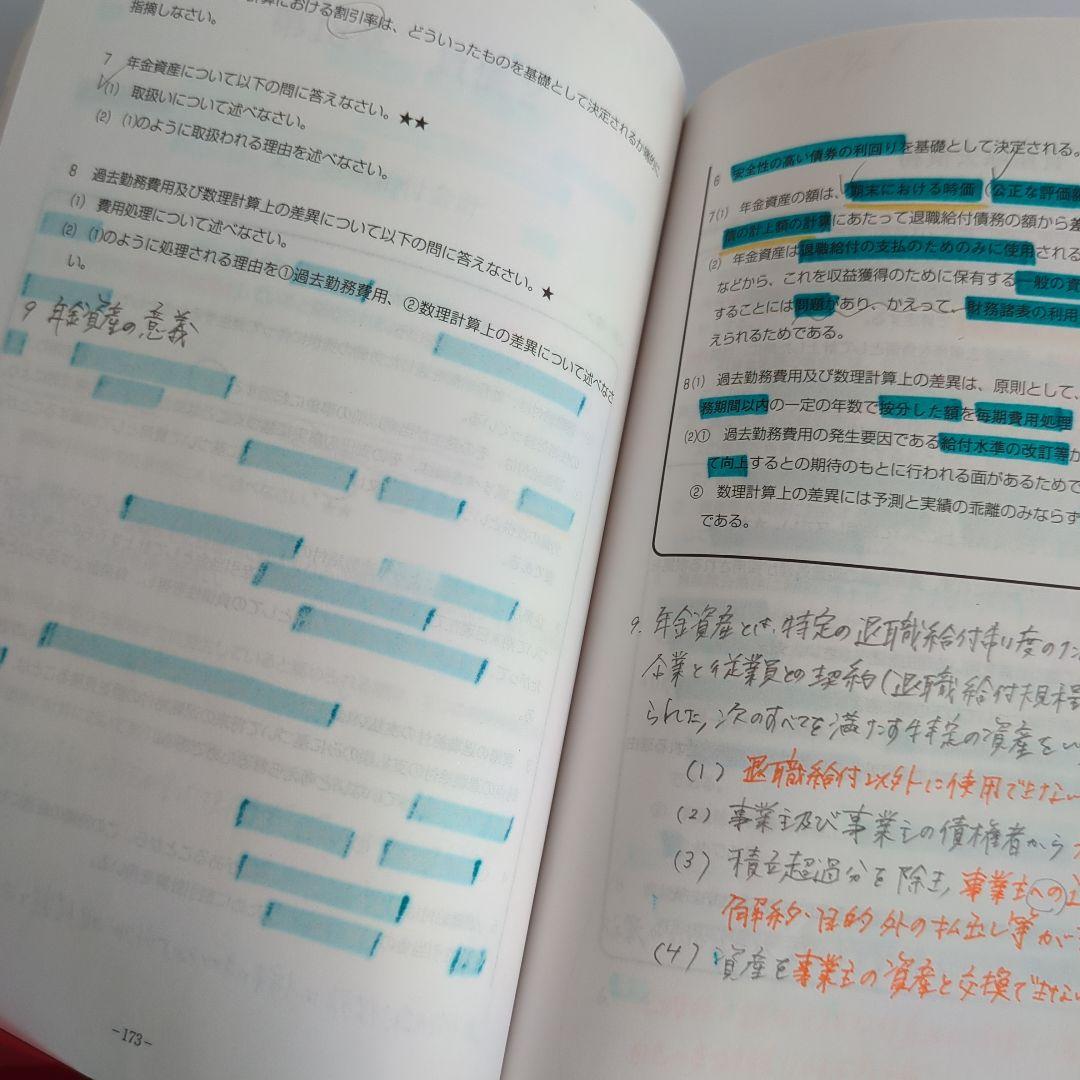 計算における割引率は、どういったものを基礎として決定されるか端的に
指摘しなさい。
7 年金資産について以下の問に答えなさい。★★
(1) 取扱いについて述べなさい。
(2) (1)のように取扱われる理由を述べなさい。
8 過去勤務費用及び数理計算上の差異について以下の問に答えなさい。★
(1) 費用処理について述べなさい。
(2) (1)のように処理される理由を①過去勤務費用、②数理計算上の差異について述べなさ
い。
9 年金資産の意義
-173-
6 安全性の高い債券の利回りを基礎として決定される。
7(1) 年金資産の額は、期末における時価(公正な評価額
債の計上額の計算にあたって退職給付債務の額から差
(2) 年金資産は退職給付の支払のためのみに使用される
などから、これを収益獲得のために保有する一般の資
することには問題があり、かえって、財務諸表の利用
えられるためである。
8(1) 過去勤務費用及び数理計算上の差異は、原則として、
務期間以内の一定の年数で按分した額を毎期費用処理
(2)① 過去勤務費用の発生要因である給付水準の改訂等が
て向上するとの期待のもとに行われる面があるためで
② 数理計算上の差異には予測と実績の乖離のみならず
である。
9. 年金資産とは、特定の退職給付制度のた
企業と従業員との契約(退職給付規程
られた、次のすべてを満たす特定の資産をい
(1) 退職給付以外に使用できない
(2) 事業主及び事業主の債権者から
(3) 積立超過分を除き、事業主への
解約・目的外の払出し等が
(4) 資産を事業主の資産と交換できない